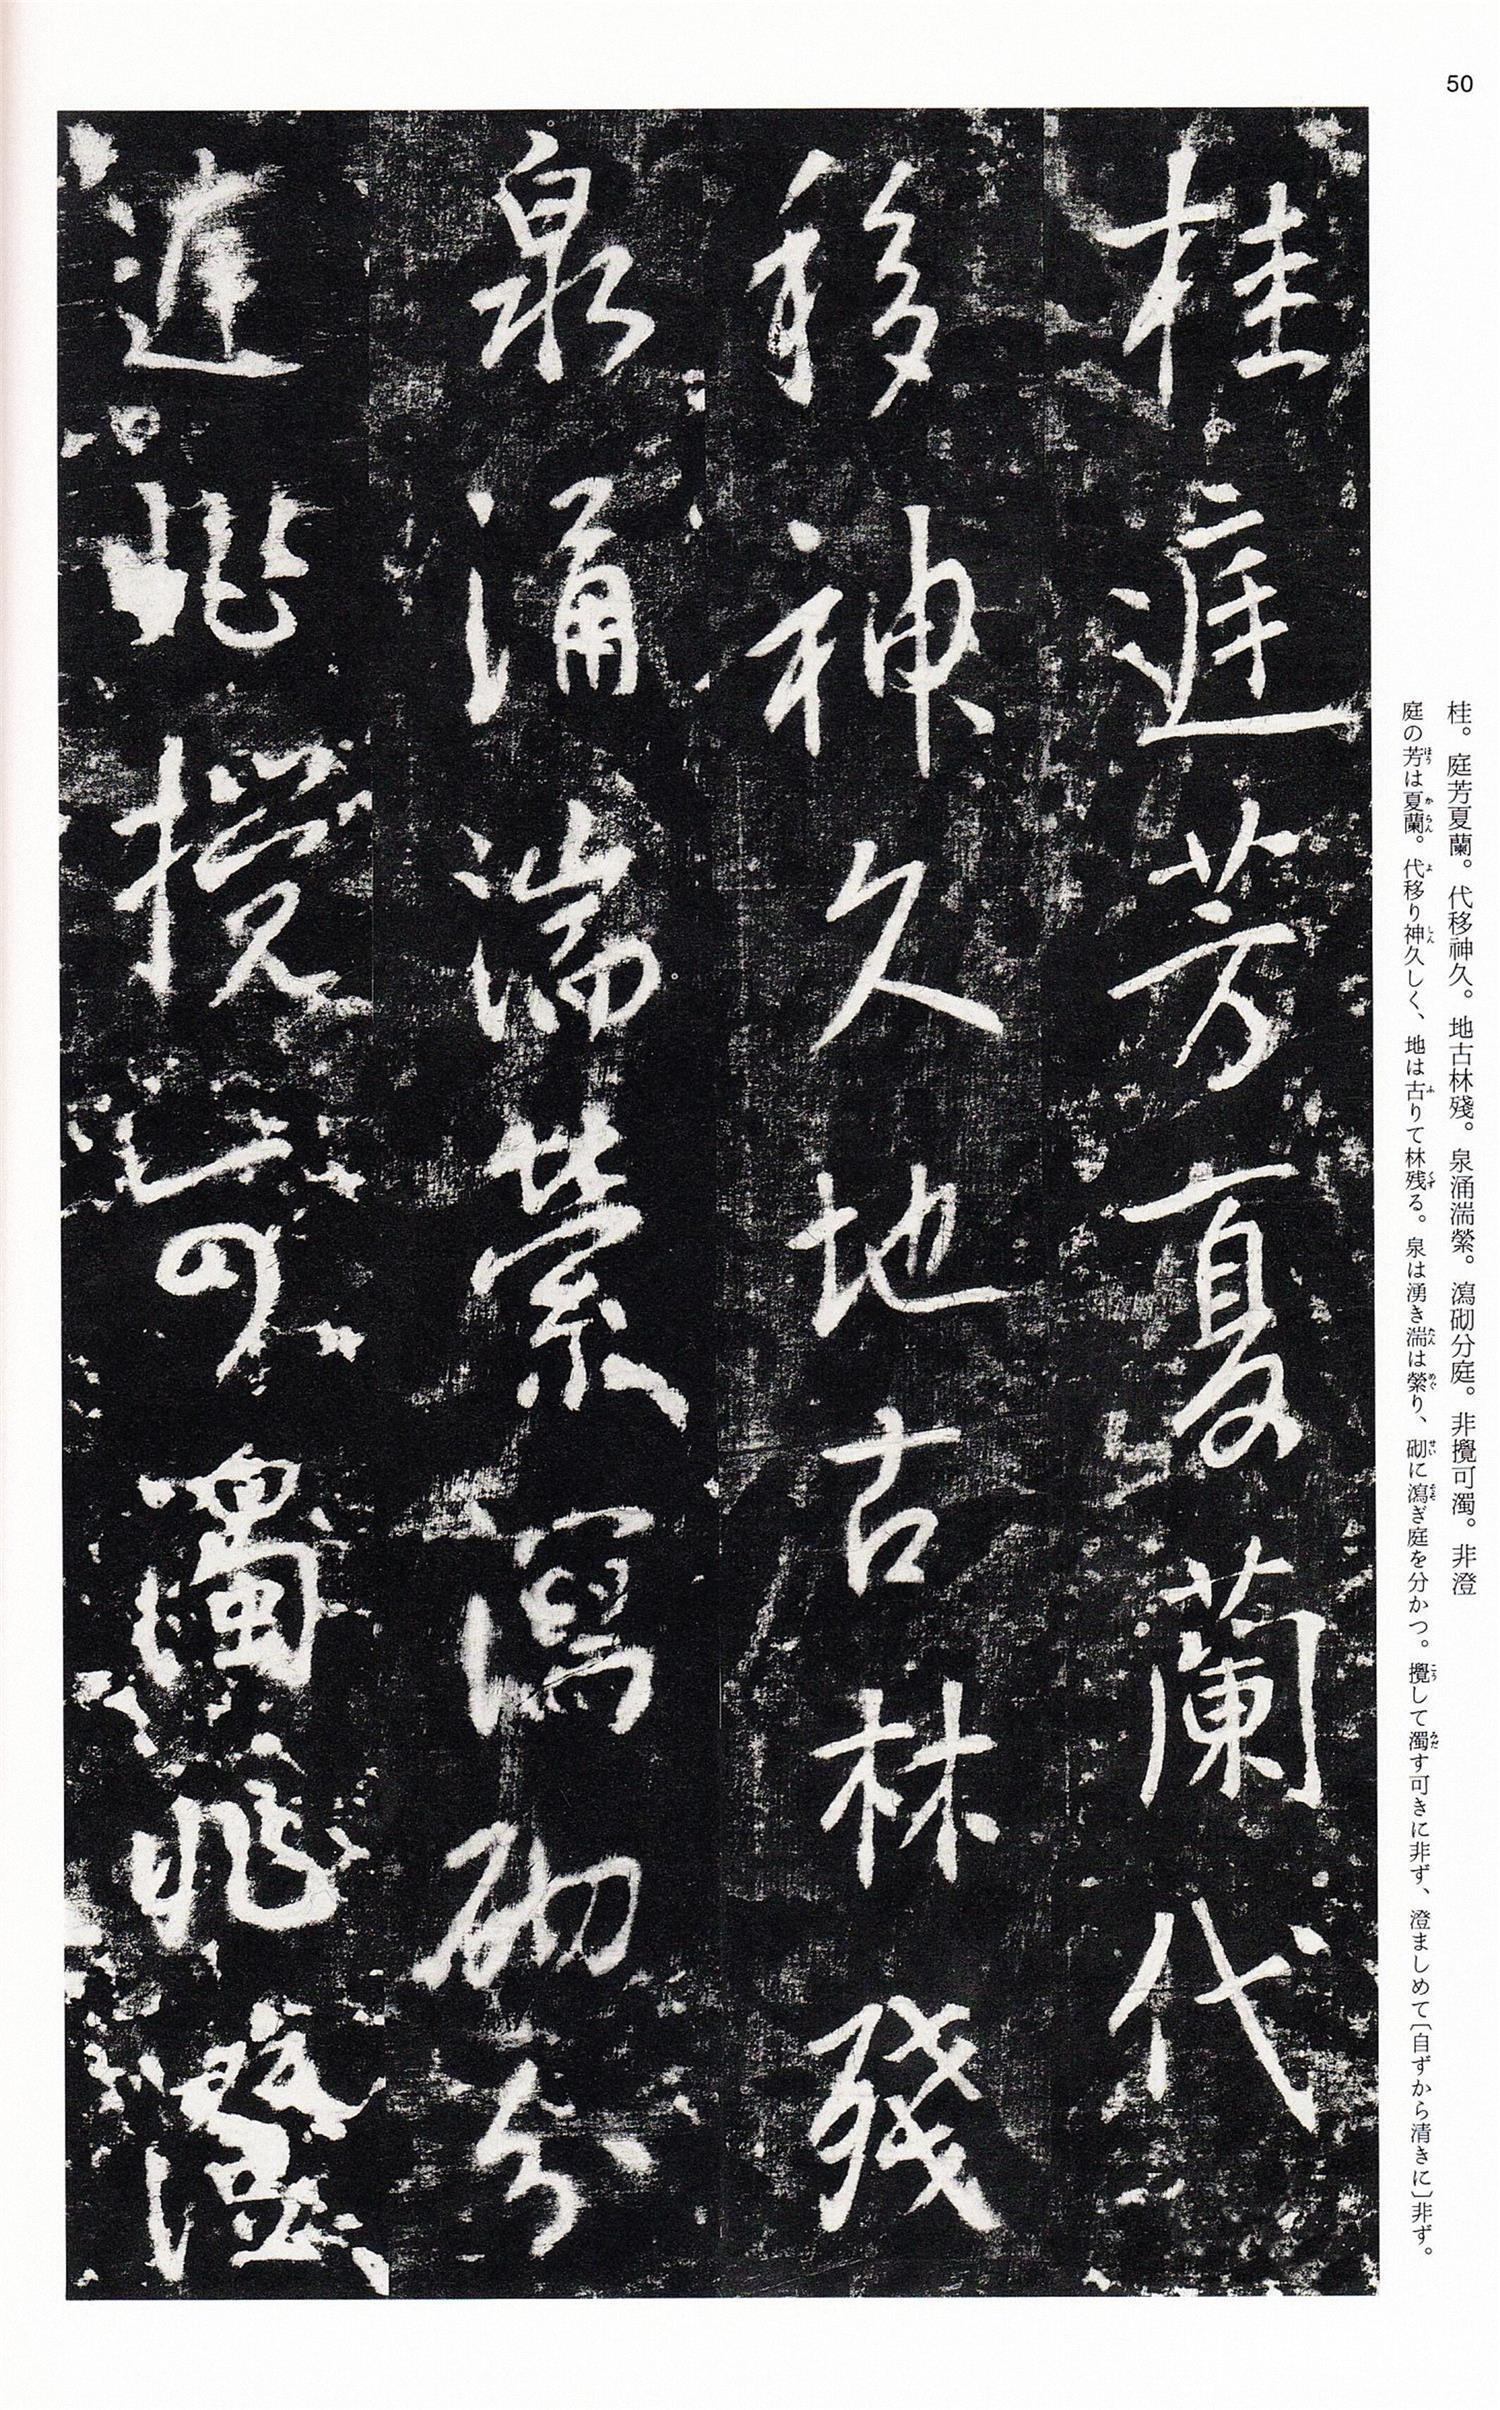 50
桂。庭芳夏蘭。代移神久。地古林殘。泉涌湍縈。瀉砌分庭。非攪可濁。非澄
庭の芳は夏蘭。代移り神久しく、地は古りて林残る。泉は湧き湍は縈り、砌に瀉ぎ庭を分かつ。攪して濁す可きに非ず、澄ましめて〔自ずから清きに〕非ず。
桂庭芳夏蘭代
移神久地古林殘
泉涌湍縈瀉砌分
庭非攪可濁非澄